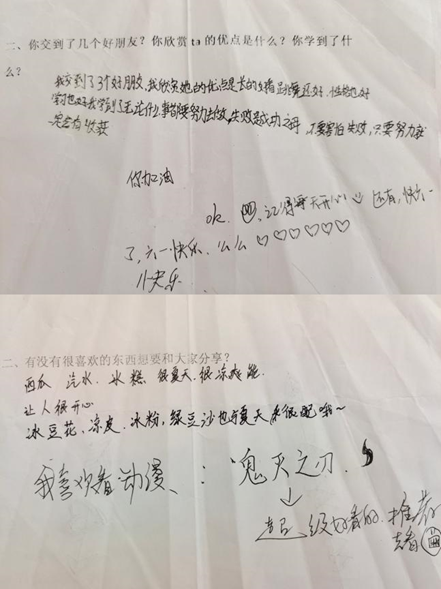 二、你交到了几个好朋友？你欣赏ta的优点是什么？你学到了什
么？
我交到了3个好朋友,我欣赏她的优点是长的好看品德还好,性格也好
学习也好我学到了无论什么事都要努力去做,失败是成功之母,不要害怕失败,只要努力就
定会有收获
你加油
ok. 记得每天开心 还有,快六一
了,六一快乐.么么♡♡♡♡♡♡
儿快乐
二、有没有很喜欢的东西想要和大家分享？
西瓜 汽水、冰糕 很夏天.很凉爽能.
让人很开心
冰豆花,凉皮.冰粉,绿豆沙也与夏天 很配哦~
我喜欢看动漫、：鬼灭之刃.
↓
超级好看的.推荐
去看